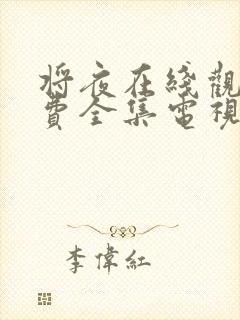 将夜在綫觀
費全集電視
李偉紅